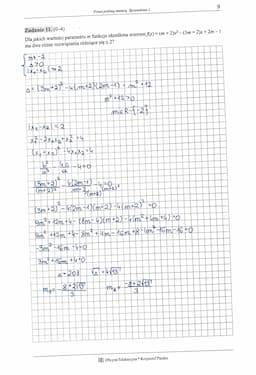 9
Zadanie 11. (0–4)
Dla jakich wartości parametru m funkcja określona wzorem f(x) = (m + 2)x² - (3m + 2)x + 2m - 1
ma dwa różne rozwiązania różniące się o 2?
m≠-2
Δ>0
|x₁-x₂|=2
Δ = (3m+2)² - 4(m+2)(2m-1) = m² + 12
m² + 12 > 0
m∈R-{-2}
|x₁-x₂|=2
x₁² - 2x₁x₂ + x₂² = 4
(x₁+x₂)² - 4x₁x₂ = 4
b²/a² - 4c/a - 4 = 0
(3m+2)² - 4(2m-1)(m+2) - 4(m+2)² = 0
9m² + 12m + 4 - (8m-4)(m+2) - 4(m² + 4m + 4) = 0
9m² + 12m + 4 - 8m² + 4m - 16m + 8 - 4m² - 16m - 16 = 0
-3m² - 16m - 4 = 0
3m² + 16m + 4 = 0
Δ = 208 √Δ = 4√13
m₁ = -8+2√13/3
Oficyna Edukacyjna * Krzysztof Pazdro